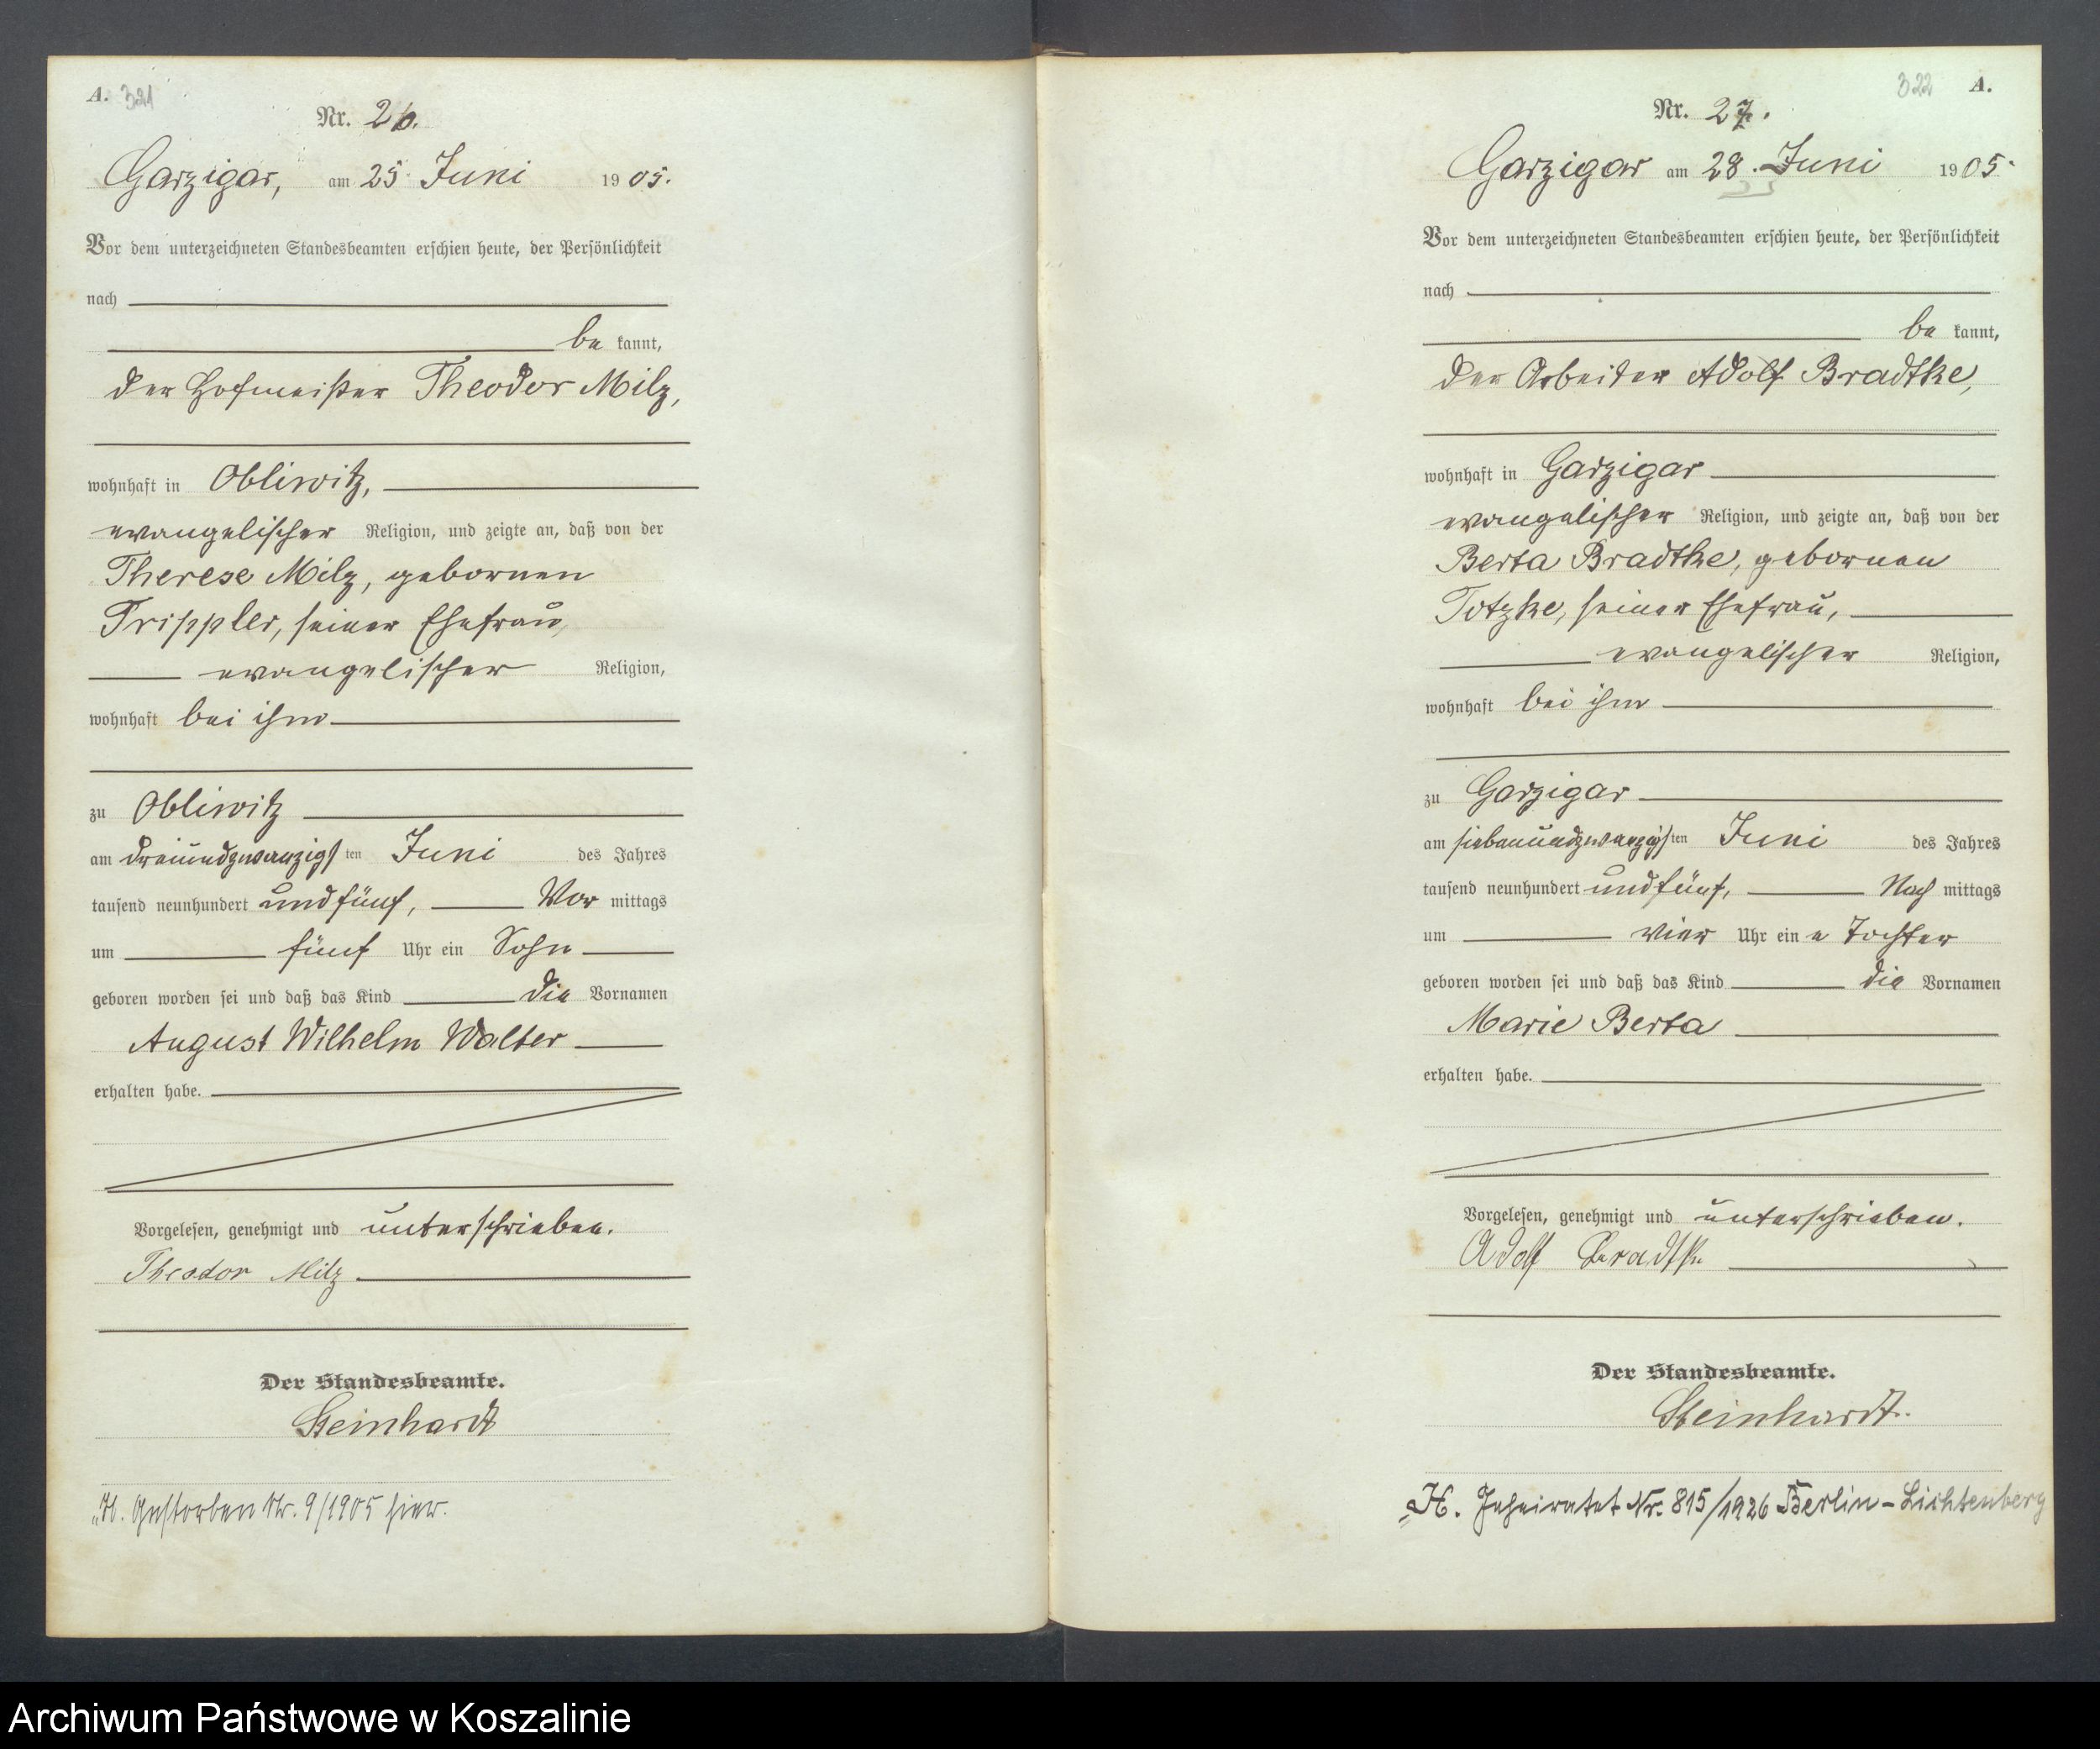 A. 321
Nr. 26.
Garzigar, am 25. Juni 1905.
Vor dem unterzeichneten Standesbeamten erschien heute, der Persönlichkeit
nach
be kannt,
der Hofmeister Theodor Milz,
wohnhaft in Obliwitz,
evangelischer Religion, und zeigte an, daß von der
Therese Milz, gebornen
Trippler, seiner Ehefrau,
evangelischer Religion,
wohnhaft bei ihm
zu Obliwitz
am dreiundzwanzigsten Juni des Jahres
tausend neunhundert und fünf, Vor mittags
um fünf Uhr ein Sohn
geboren worden sei und daß das Kind die Vornamen
August Wilhelm Walter
erhalten habe.
Vorgelesen, genehmigt und unterschrieben.
Theodor Milz
Der Standesbeamte.
Steinhardt
H. Gestorben Nr. 9/1905 hier.
322 A.
Nr. 27.
Garzigar am 28. Juni 1905.
Vor dem unterzeichneten Standesbeamten erschien heute, der Persönlichkeit
nach
be kannt,
der Arbeiter Adolf Bradtke,
wohnhaft in Garzigar
evangelischer Religion, und zeigte an, daß von der
Berta Bradtke, gebornen
Totzke, seiner Ehefrau,
evangelischer Religion,
wohnhaft bei ihm
zu Garzigar
am siebenundzwanzigsten Juni des Jahres
tausend neunhundert und fünf, Nach mittags
um vier Uhr eine Tochter
geboren worden sei und daß das Kind die Vornamen
Marie Berta
erhalten habe.
Vorgelesen, genehmigt und unterschrieben.
Adolf Bradtke
Der Standesbeamte.
Steinhardt.
H. Geheiratet Nr. 815/1926 Berlin-Lichtenberg
Archiwum Państwowe w Koszalinie